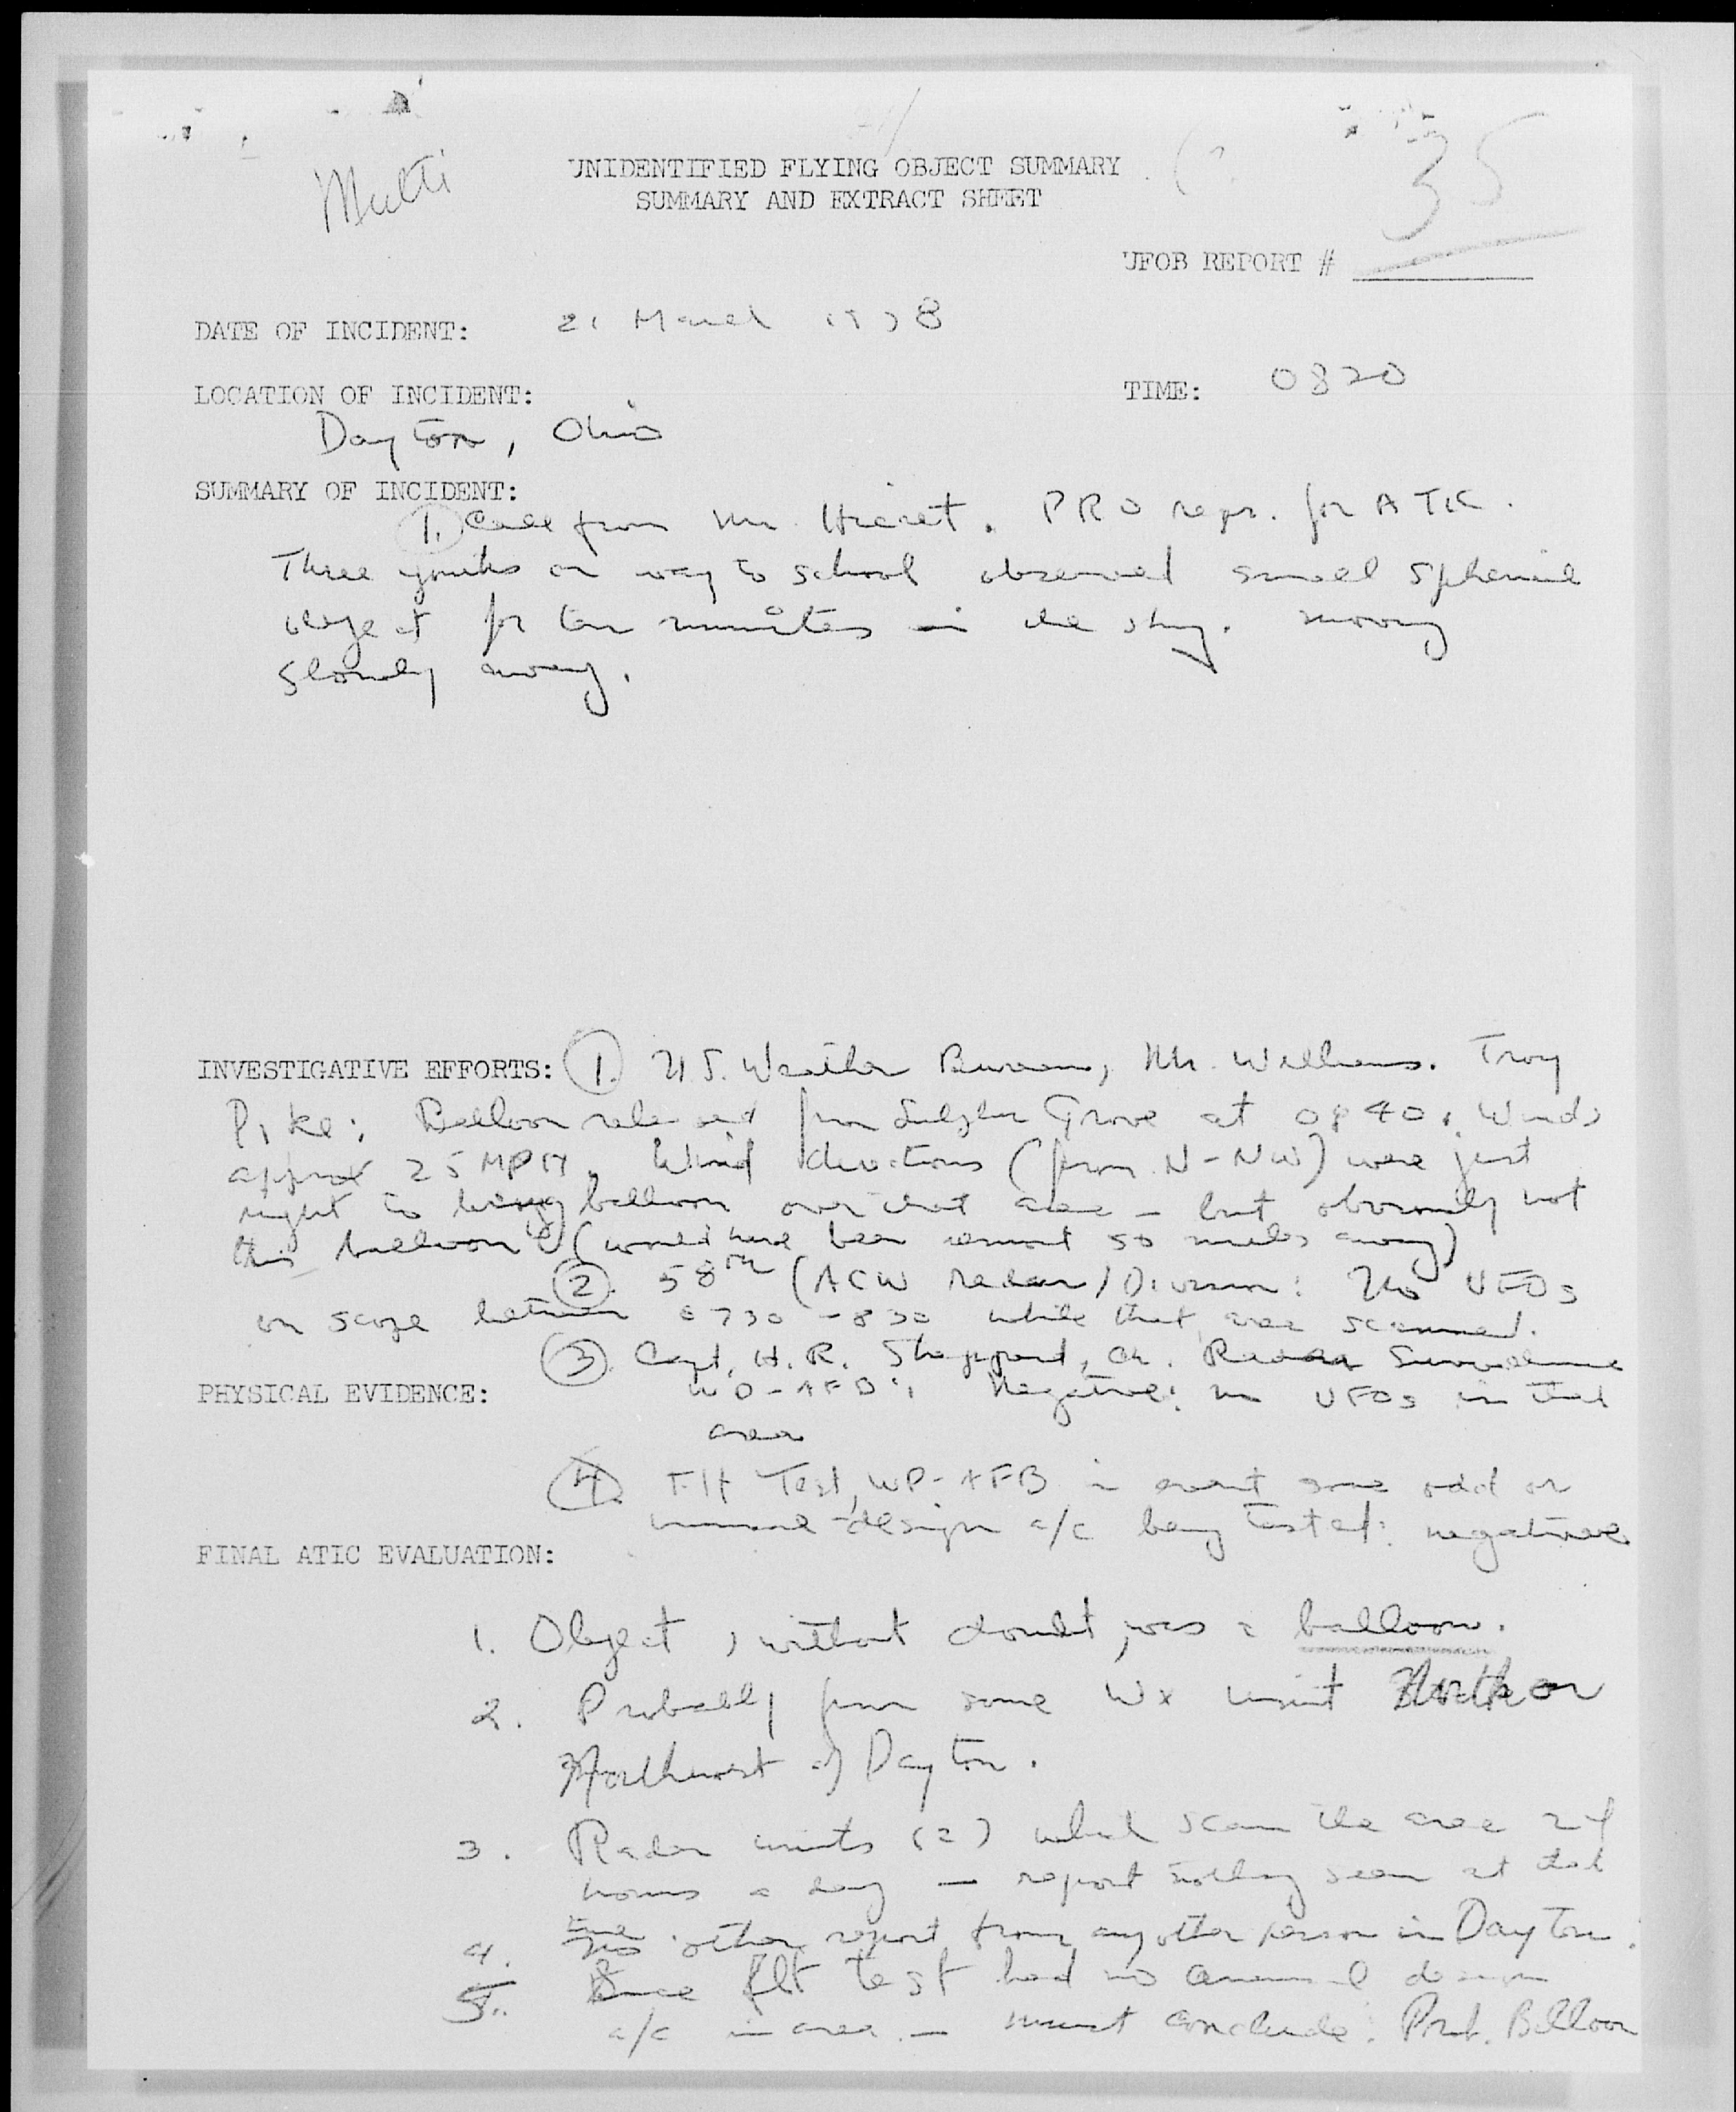 Multi
UNIDENTIFIED FLYING OBJECT SUMMARY
SUMMARY AND EXTRACT SHEET
35
UFOB REPORT #
DATE OF INCIDENT: 21 March
LOCATION OF INCIDENT: TIME: 0820
Dayton, Ohio
SUMMARY OF INCIDENT:
1. Call from Mr. PRO repr. for ATIC.
Three youths on way to school observed small spherical
object for ten minutes in the sky. moving
slowly away.
INVESTIGATIVE EFFORTS: 1. U.S. Weather Bureau, Mr. Williams. Troy
Pike: Balloon released from Grove at 0840. Winds
approx 25 MPH. Wind directions (from N-NW) were just
right to bring balloon over that area - but obviously not
this balloon (would have been almost 50 miles away)
2. 58th (ACW radar) Division: No UFOs
on scope between 0730-830 while that area scanned.
3. Capt. H.R. Sheppard, Ch. Radar Surveillance
PHYSICAL EVIDENCE: WP-AFB: Negative: no UFOs in that
area
4. Flt Test, WP-AFB in event some odd or
unusual design a/c being tested: negative.
FINAL ATIC EVALUATION:
1. Object, without doubt, was a balloon.
2. Probably from some Wx unit North or
Northwest of Dayton.
3. Radar units (2) which scan the area 24
hours a day - report nothing seen at that
time
4. No other report from any other person in Dayton.
5. Since flt test had no unusual design
a/c in area - must conclude: Prob. Balloon